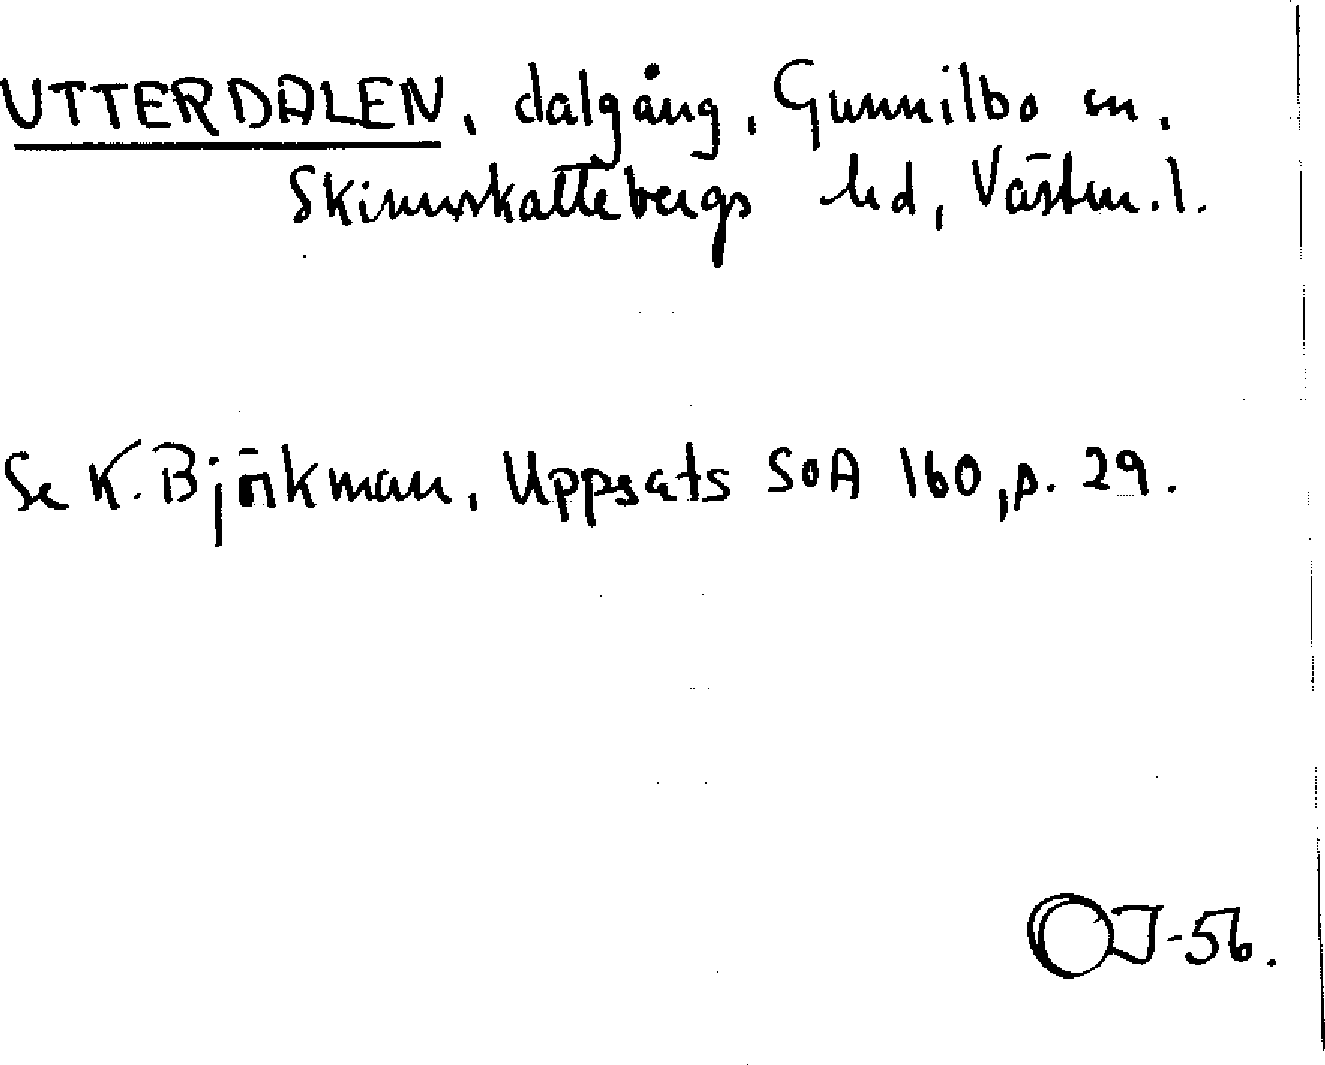 UTTERDALEN, dalgång, Gunnilbo sn,
Skinnskattebergs hd, Västm.l.
Se K. Björkman, Uppsats SOA 160, p. 29.
OJ-56.